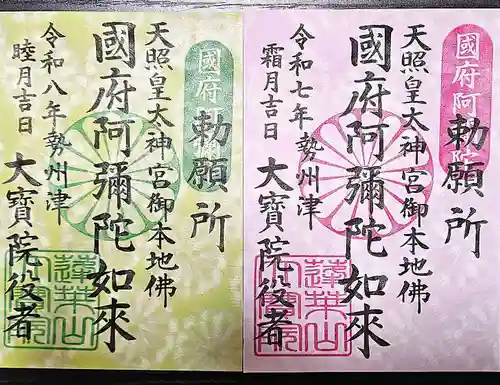 國府阿彌陀
勅願所
天照皇太神宮御本地佛
國府阿彌陀如來
令和七年勢州津
霜月吉日
大寶院役者
蓮華山
勅願所
天照皇太神宮御本地佛
國府阿彌陀如來
令和八年勢州津
睦月吉日
大寶院役者
蓮華山